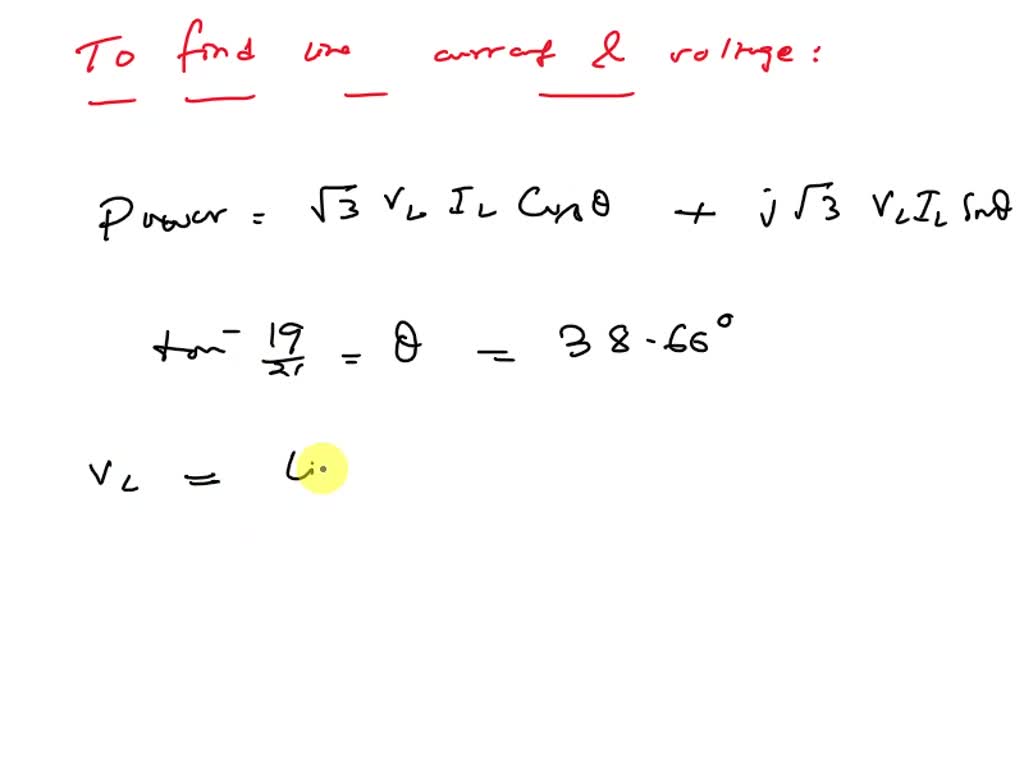 To find line current & voltage:
Power = √3 V_L I_L Cosθ + j √3 V_L I_L Sinθ
tan⁻ 19/21 = θ = 38.66°
V_L = Li